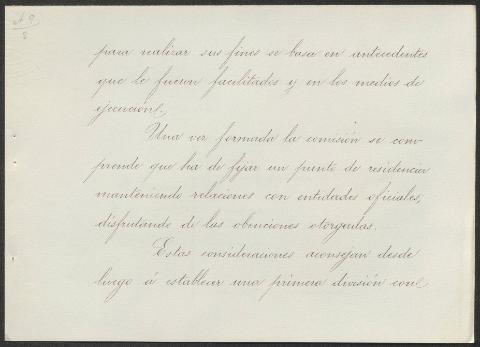 para realizar sus fines se basa en antecedentes
que le fueron facilitados y en los medios de
ejecución.
Una vez formada la comisión se com-
prende que ha de fijar un punto de residencia
manteniendo relaciones con entidades oficiales,
disfrutando de las obenciones otorgadas.
Estas consideraciones aconsejan desde
luego á establecer una primera división con